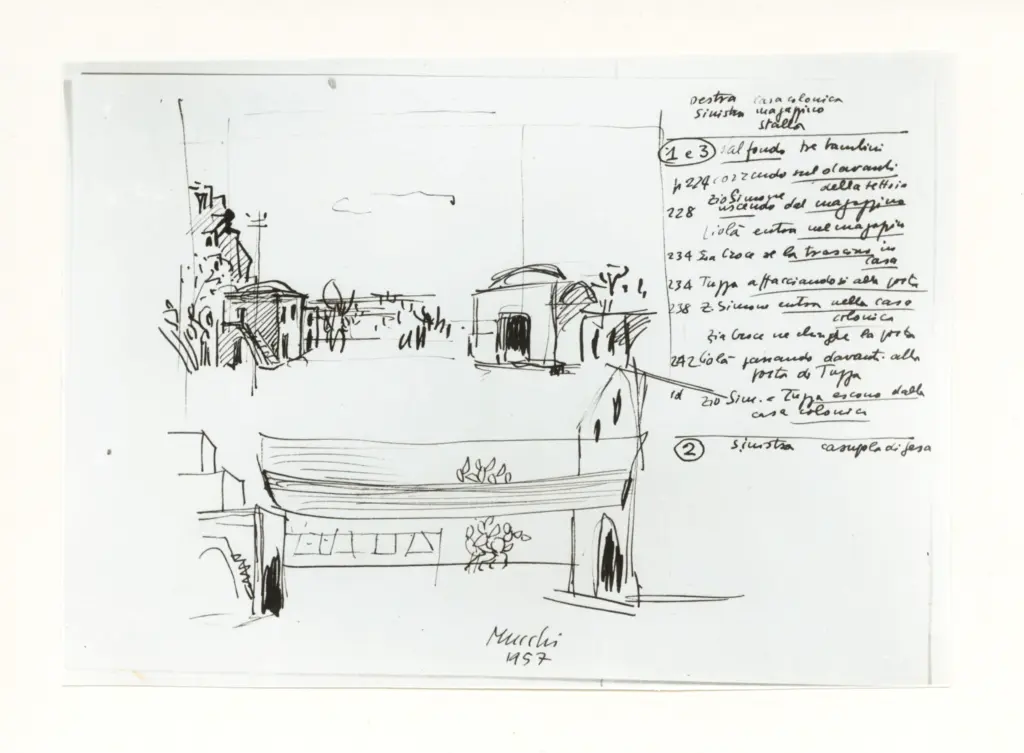 Destra casa colonica
Sinistra magazzino
stalla
1 e 3 sul fondo tre bambini
p 224 correndo sul davanti
della tettoia
zio Simone
228 uscendo dal magazzino
Liolà entra nel magazzino
234 Zia Croce se la trascina in
casa
234 Tuzza affacciandosi alla porta
238 Z. Simone entra nella casa
colonica
zia Croce ne chiude la porta
242 Liolà passando davanti alla
porta di Tuzza
id zio Sim. e Tuzza escono dalla
casa colonica
2 Sinistra casupola di Gesa
Mucchi
1957